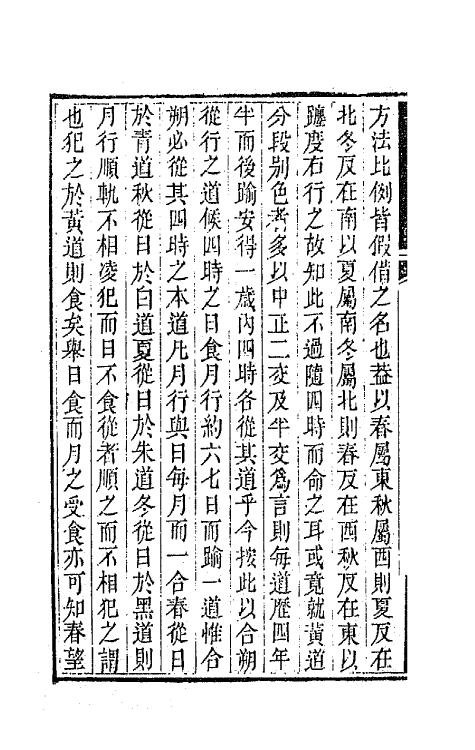 方法比例皆假借之名也葢以春屬東秋屬西則夏反在
北冬反在南以夏屬南冬屬北則春反在西秋反在東以
躔度右行之故知此不過隨四時而命之耳或竟就黃道
分段别色者多以中正二交及半交爲言則每道歷四年
半而後踰安得一歲內四時各從其道乎今按此以合朔
從行之道候四時之日食月行約六七日而踰一道惟合
朔必從其四時之本道凡月行與日每月而一合春從日
於青道秋從日於白道夏從日於朱道冬從日於黑道則
月行順軌不相凌犯而日不食從者順之而不相犯之謂
也犯之於黃道則食矣舉日食而月之受食亦可知春望